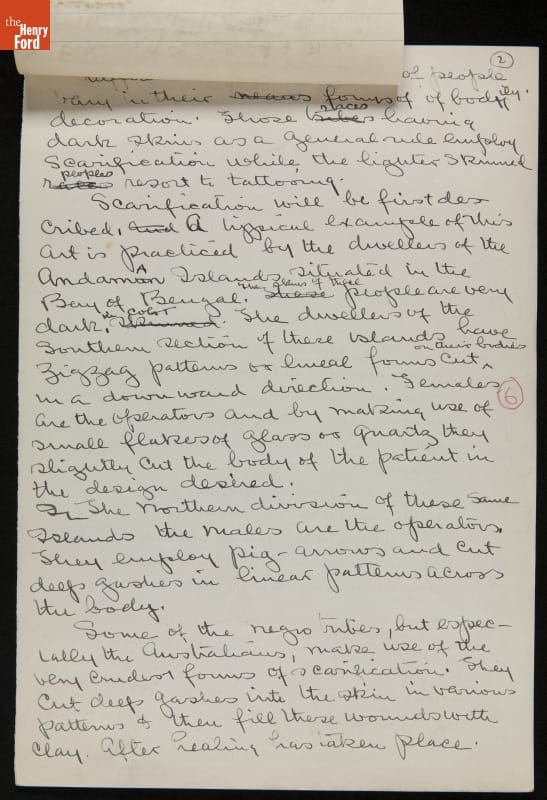 the
Henry
Ford
2
of people
vary in their means forms of of bodily
decoration. Those tribes races having
dark skins as a general rule employ
Scarification while the lighter skinned
races peoples resort to tattooing.
Scarification will be first des
cribed. And A typical example of this
art is practiced by the dwellers of the
Andaman Islands situated in the
Bay of Bengal. These The skins of these people are very
dark in color skinned. The dwellers of the
Southern section of these islands have
zigzag patterns or lineal forms cut on their bodies
in a downward direction. Females
are the operators and by making use of
small flakes of glass or quartz they
slightly cut the body of the patient in
the design desired.
In The Northern division of these same
Islands the males are the operators.
They employ pig-arrows and cut
deep gashes in linear patterns across
the body.
Some of the negro tribes, but espec-
ially the Australians, make use of the
very crudest forms of scarification. They
cut deep gashes into the skin in various
patterns & then fill these wounds with
clay. After healing has taken place.
6